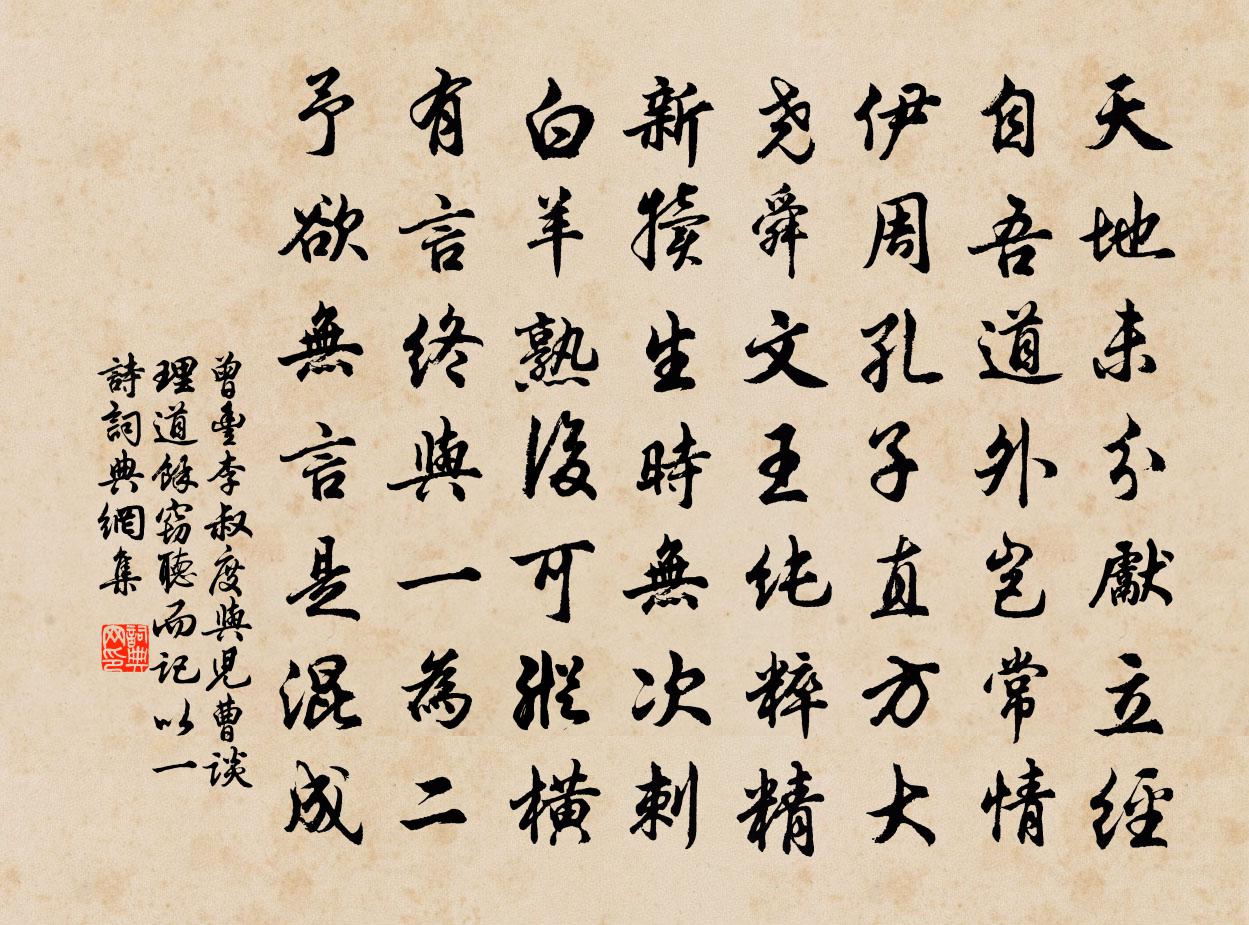 天地未分獻立經
自吾道外岂常情
伊周孔子直方大
尧舜文王纯粹精
新犢生時無次刺
白羊熟後可縱橫
有言終與一為二
予欲無言是混成
曾豐李叔度與児曹談
理道餘窃聽而記以一
詩詞典網集
詞典网印